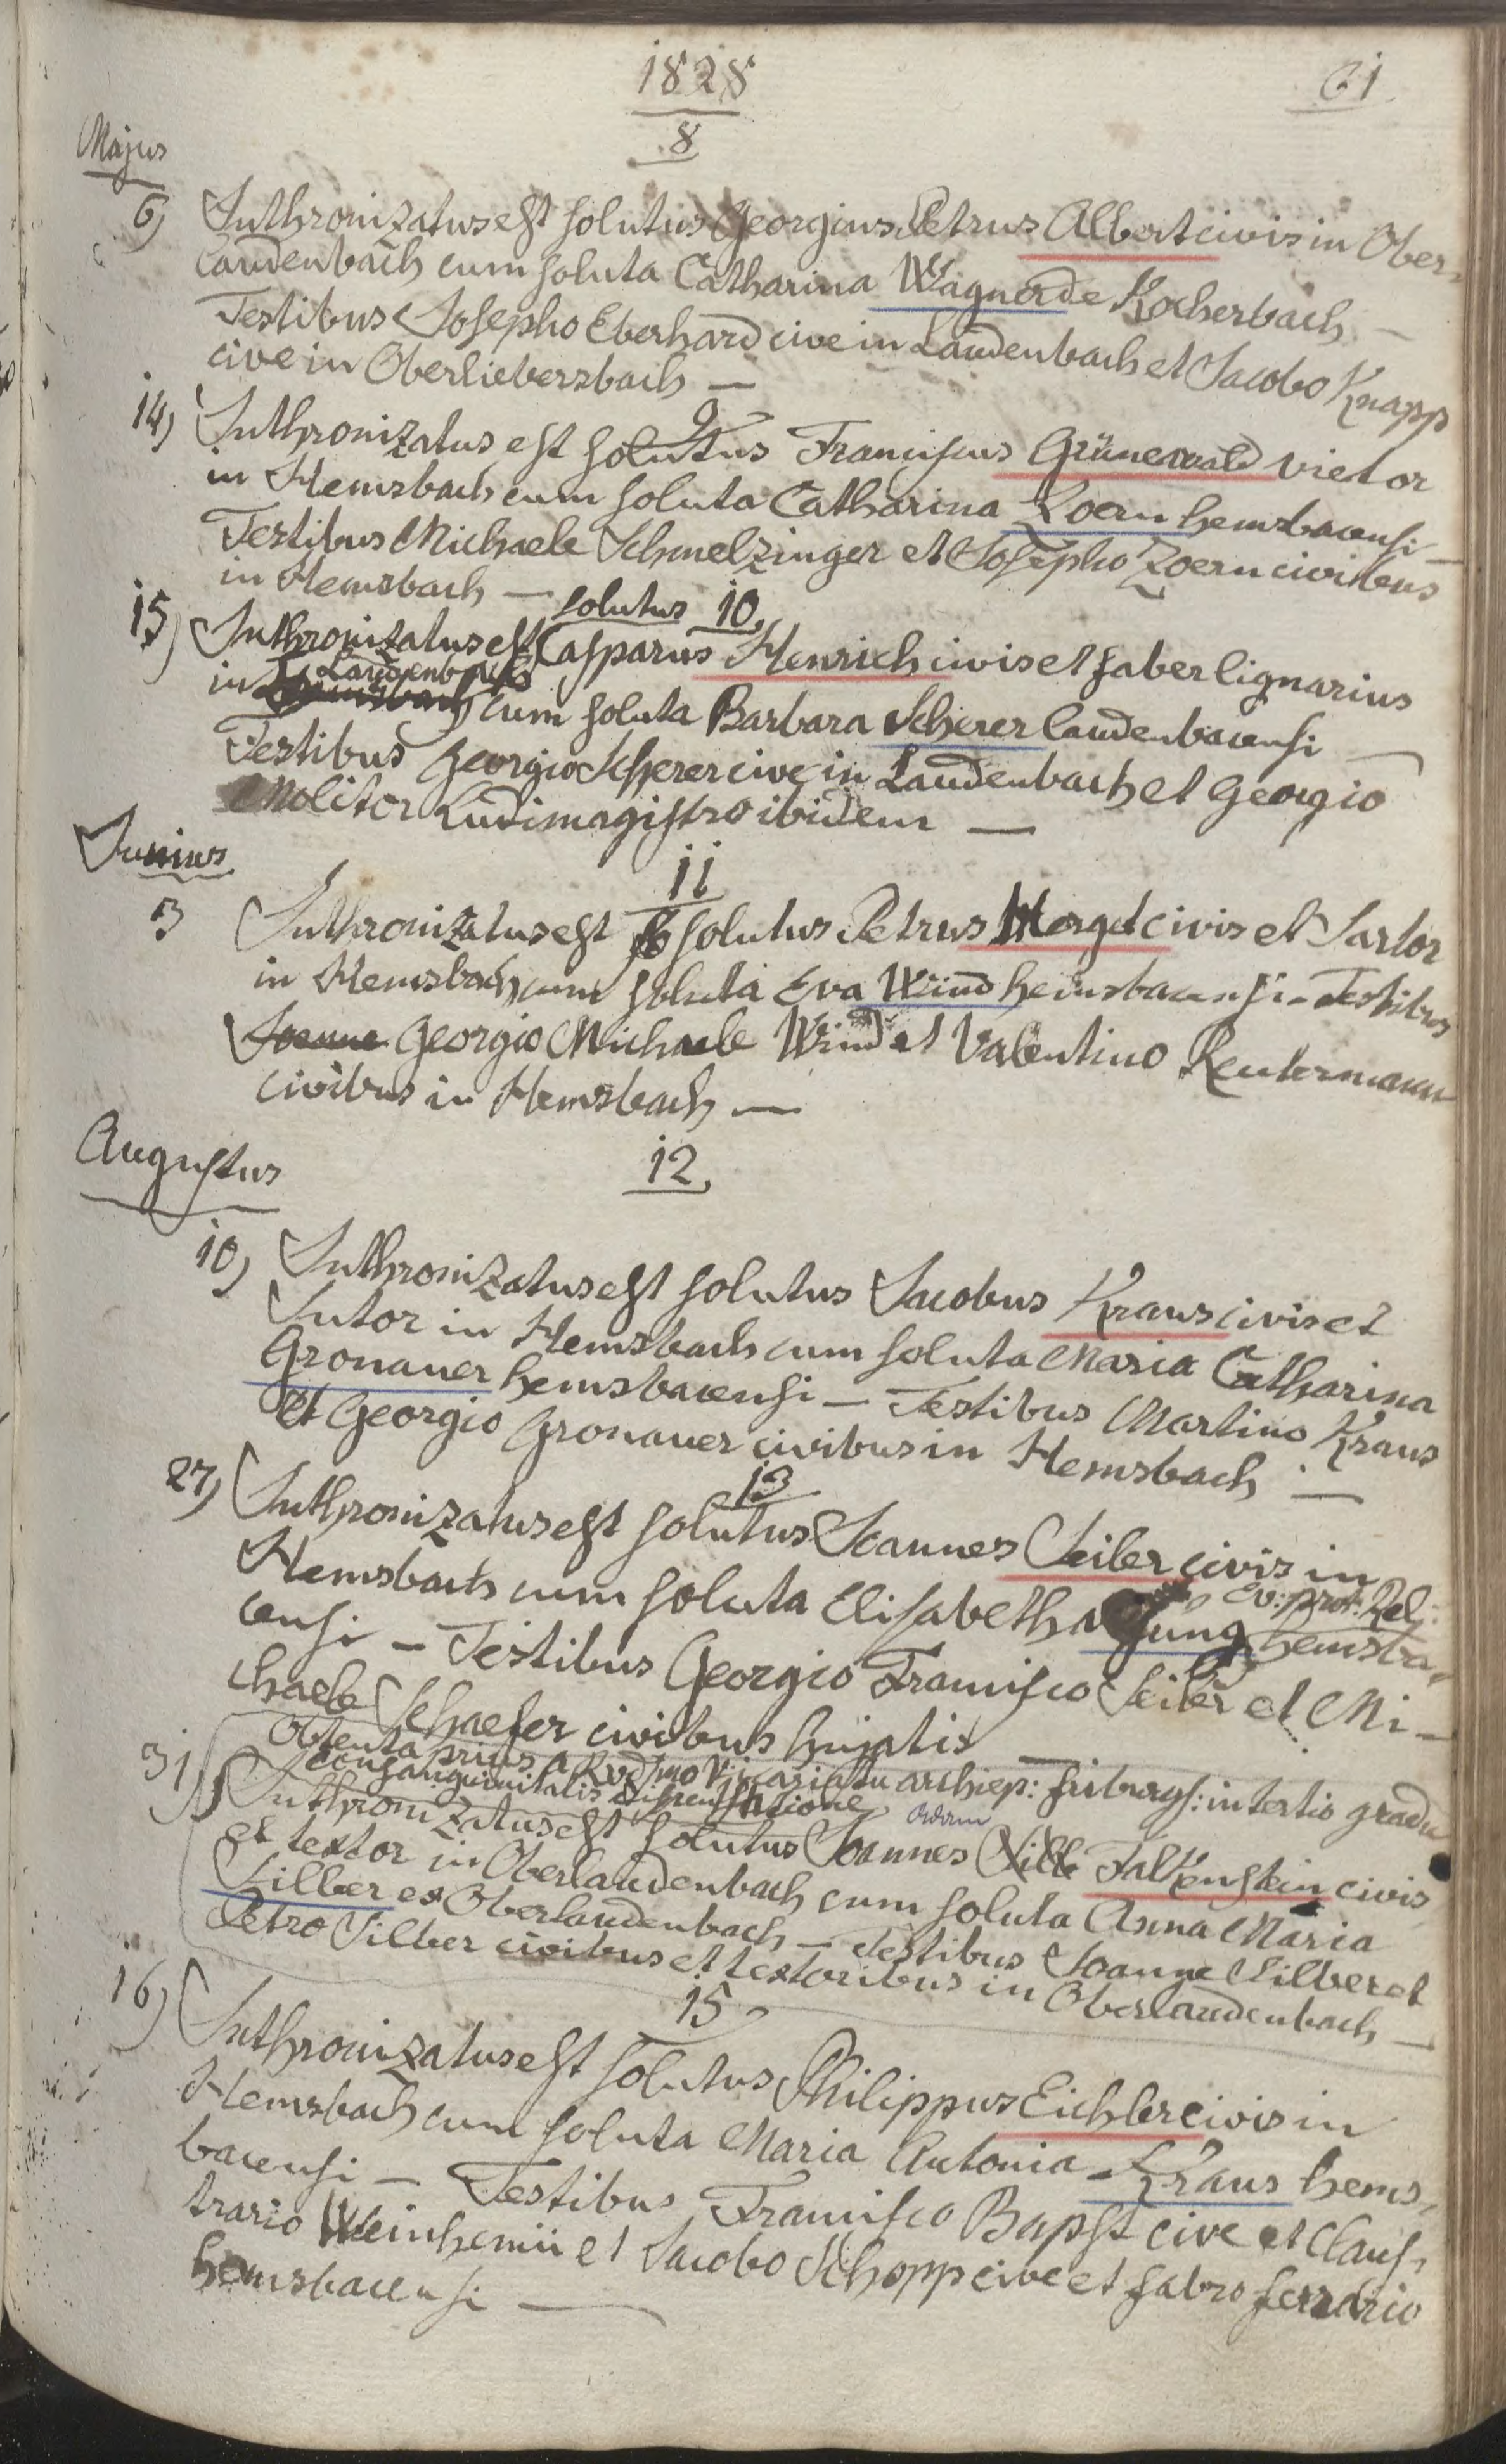 1828
61
8
Majus
6) Inthronizatus est solutus Georgius Petrus Albert civis in Ober-
laudenbach cum soluta Catharina Wagner de Kocherbach —
Testibus Josepho Eberhard cive in Laudenbach et Jacobo Knapp
cive in Oberliebersbach —
9
14) Inthronizatus est solutus Franciscus Grünewald vietor
in Hemsbach cum soluta Catharina Zoern hemsbacensi —
Testibus Michaele Schmelzinger et Josepho Zoern civibus
in Hemsbach —
solutus 10
15) Inthronizatus est Casparus Henrich civis et faber lignarius
Laudenbach
in cum soluta Barbara Scherer laudenbacensi —
Testibus Georgio Scherer cive in Laudenbach et Georgio
Molitor Ludimagistro ibidem —
Junius
11
3 Inthronizatus est solutus Petrus Horget civis et Sartor
in Hemsbach cum soluta Eva Wind hemsbacensi - Testibus
Joanne Georgio Michaele Wind et Valentino Reutermann
civibus in Hemsbach —
Augustus
12
10) Inthronizatus est solutus Jacobus Kraus civis et
Sutor in Hemsbach cum soluta Maria Catharina
Gronauer hemsbacensi — Testibus Martino Kraus
et Georgio Gronauer civibus in Hemsbach —
13
27) Inthronizatus est solutus Joannes Seiler civis in
Hemsbach cum soluta Elisabetha Jung Ev: prot: Rel: hemsba-
censi — Testibus Georgio Francisco Seiler et Mi-
chaele Schaefer civibus hujatis —
Obtenta prius a Rvdmo Vicariatu archiep: friburgs: in tertio gradu
consanguinitatis dispensatione
31) Inthronizatus est solutus Joannes Adam Falkenstein civis
et textor in Oberlaudenbach cum soluta Anna Maria
Silber ex Oberlaudenbach — Testibus Joanne Silber et
Petro Silber civibus et textoribus in Oberlaudenbach —
15
16) Inthronizatus est solutus Philippus Eichler civis in
Hemsbach cum soluta Maria Antonia Kraus hems-
bacensi — Testibus Francisco Bapst cive et claus-
trario Weinhemii et Jacobo Schopp cive et fabro ferrario
hemsbacensi —